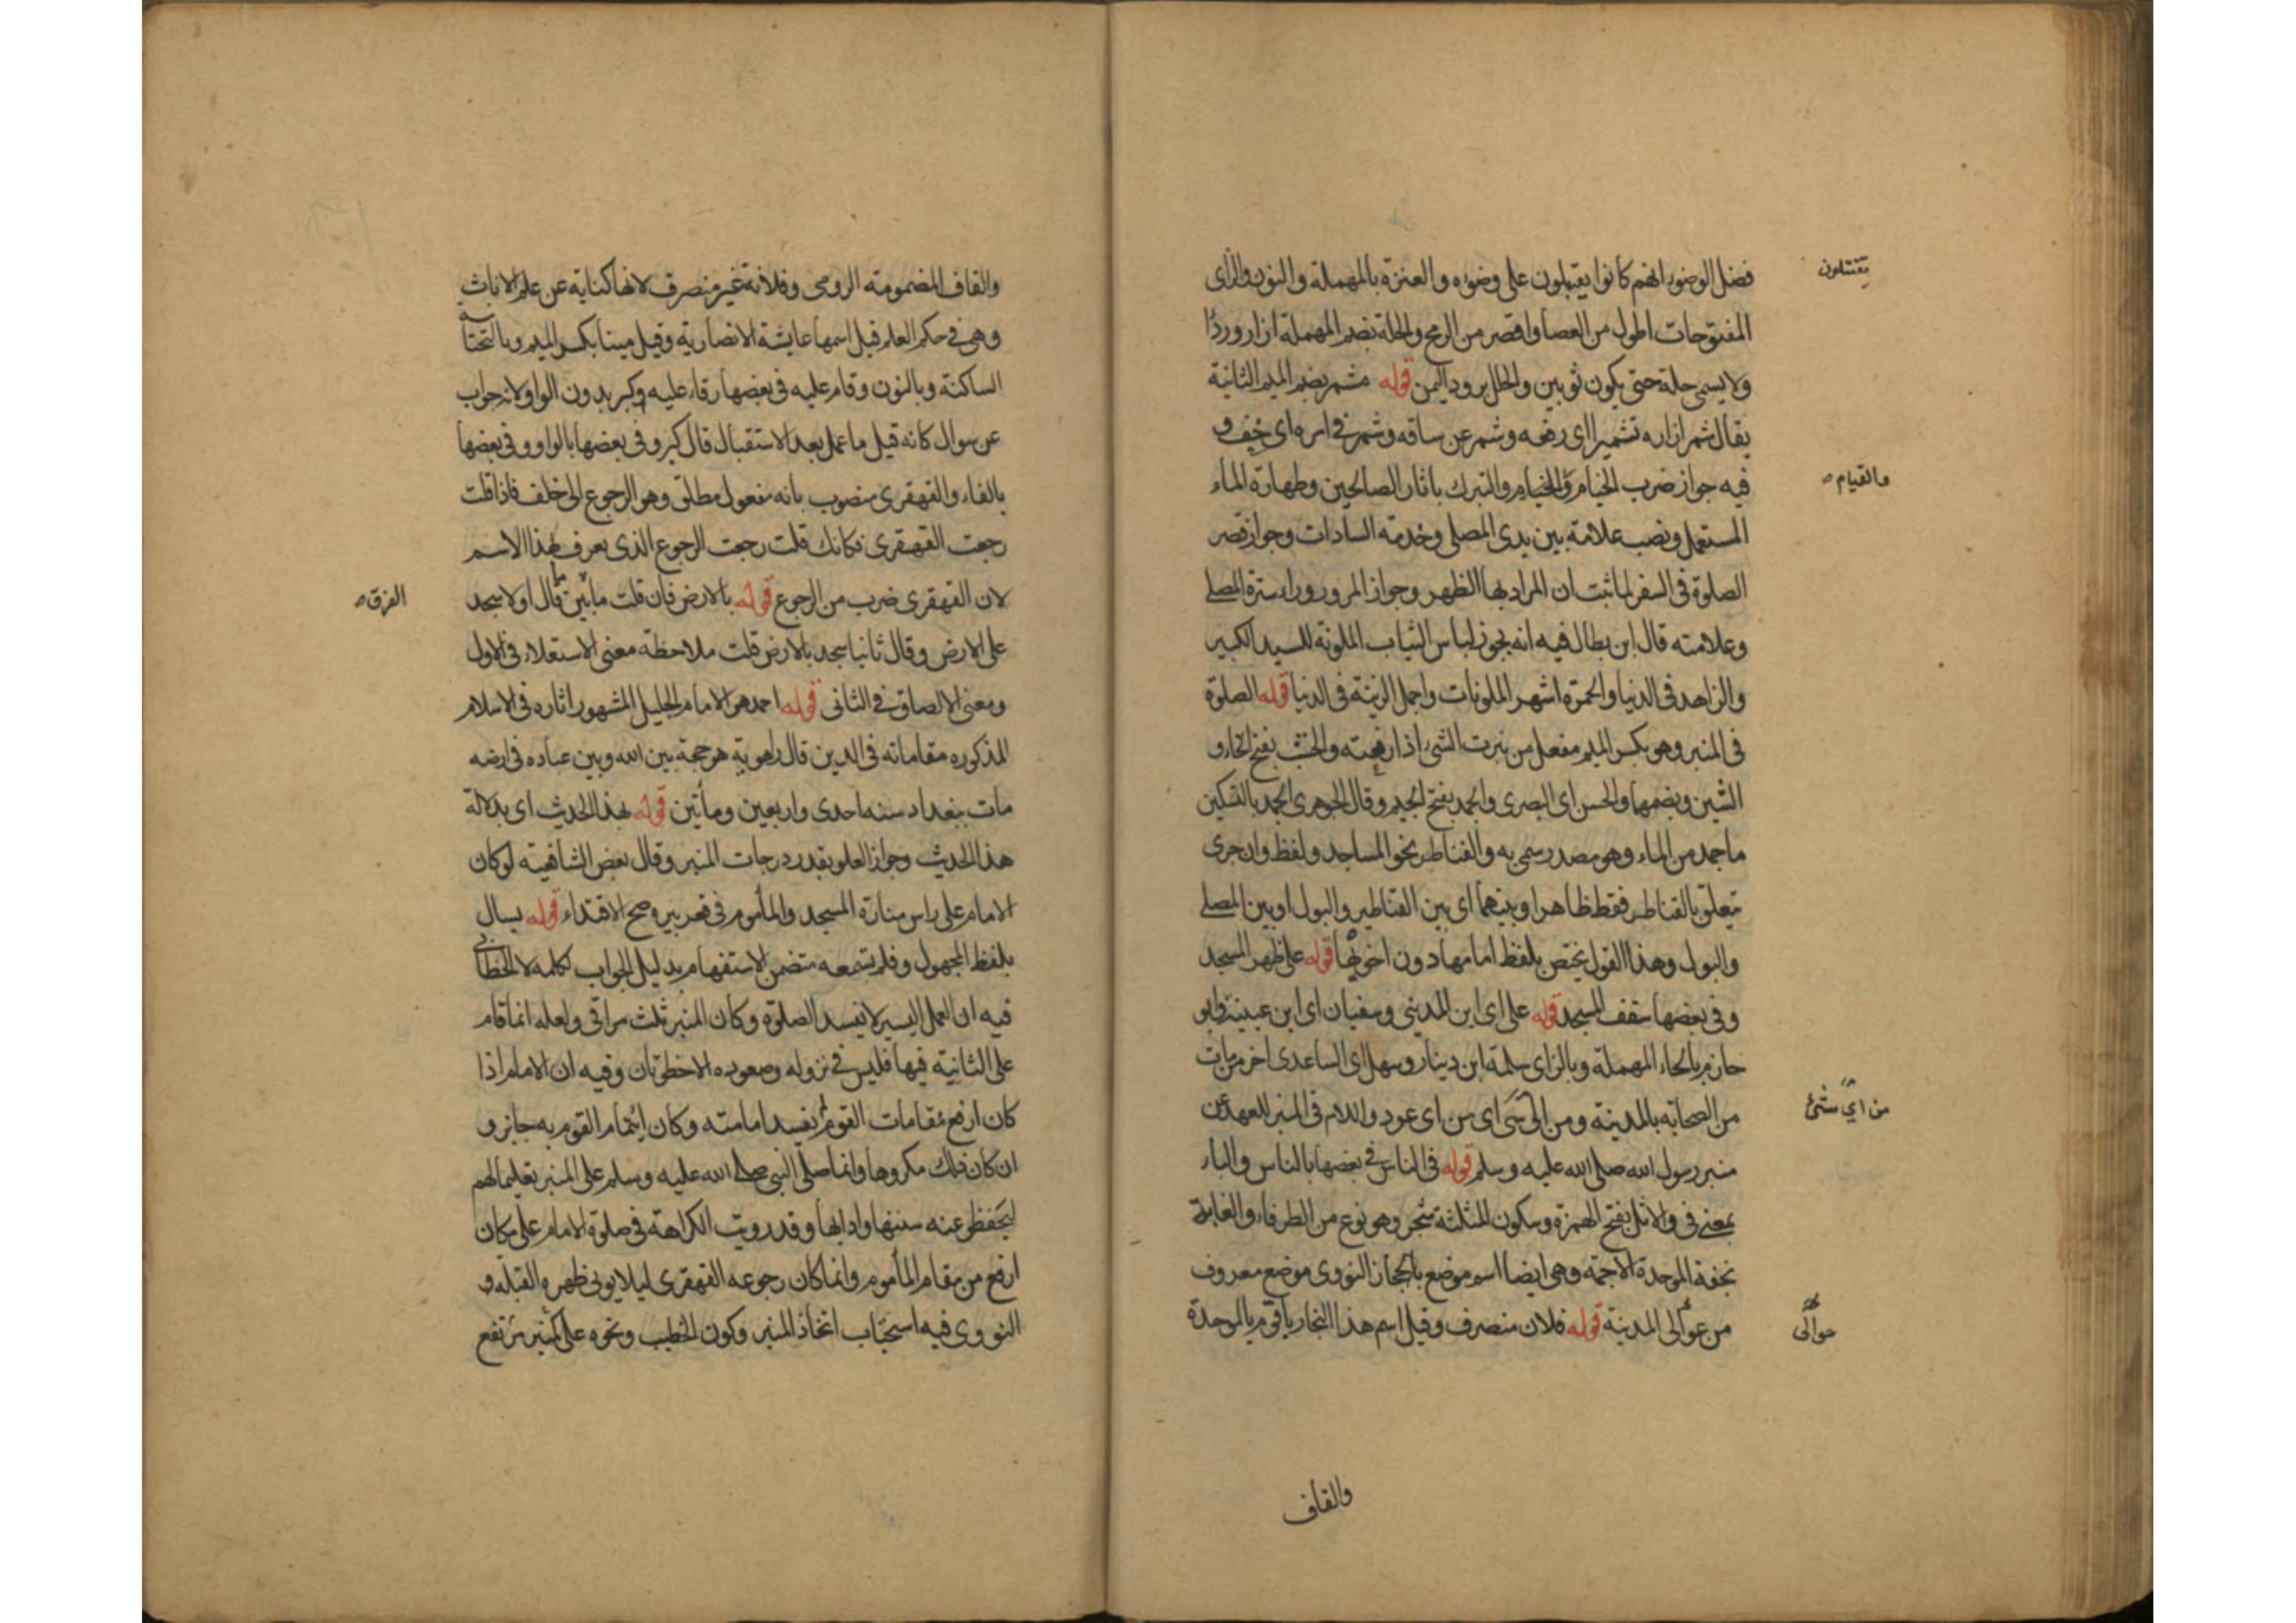 فضل الوضوء انهم كانوا يقتبلون على وضوءه والعنزة بالمهملة والنون والزاى
يقتتلون
المفتوحات اطول من العصا واقصر من الرمح والحلة بضم المهملة ازار وردا
ولا يسمى حلة حتى يكون ثوبين والحلل برود اليمن قوله مشمر بضم الميم الثانية
يقال شمر ازاره تشميرا اى رفعه وشمر عن ساقه وشمر فى امره اى خف و
فيه جواز ضرب الخيام والخيام والتبرك باثار الصالحين وطهارة الماء
والقيام
المستعمل ونصب علامة بين يدى المصلى وخدمة السادات وجواز قصر
الصلوة فى السفر لما ثبت ان المراد بها الظهر وجواز المرور وراء سترة المصلى
وعلامته قال ابن بطال فيه انه يجوز لباس الثياب الملونة للسيد الكبير
والزاهد فى الدنيا والحمرة اشهر الملونات واجمل الزينة فى الدنيا قوله الصلوة
فى المنبر وهو بكسر الميم مفعل من نبرت الشئ اذا رفعته والخشب بفتح الخاء و
الشين وبضمها والحسن اى البصرى والجمد بفتح الجيم وقال الجوهرى الجمد بالتسكين
ما جمد من الماء وهو مصدر سمى به والقناطر نحو المساجد ولفظ وان جرى
يتعلق بالقناطر فقط ظاهرا وبينهما اى بين القناطير والبول او بين المصلى
والبول وهذا القول يختص بلفظ امامها دون اخوتها قوله على ظهر المسجد
وفى بعضها سقف المسجد قوله على اى ابن المدينى وسفيان اى ابن عيينة وابو
حازم بالحاء المهملة وبالزاى سلمة ابن دينار وسهل اى الساعدى اخر من مات
من الصحابة بالمدينة ومن اى شئ اى من اى عود واللام فى المنبر للعهد عن
من اي شئ
منبر رسول الله صلى الله عليه وسلم قوله فى الناس فى بعضها بالناس والباء
بمعنى فى والاثل بفتح الهمزة وسكون المثلثة شجر وهو نوع من الطرفاء والغابة
بخفة الموحدة الاجمة وهى ايضا اسم موضع بالحجاز النووى موضع معروف
من عوالى المدينة قوله فلان منصرف وقيل اسم هذا النجار باقوم بالموحدة
حوالى
والقاف
والقاف المضمومة الرومى وفلانة غير منصرف لانها كناية عن علم الاناث
وهى فى حكم العلم قيل اسمها عايشة الانصارية وقيل مينا بكسر الميم وبالتحتانية
الساكنة وبالنون وقام عليه فى بعضها رقا عليه وكبر بدون الواو لانه جواب
عن سوال كانه قيل ما عمل بعد الاستقبال قال كبر وفى بعضها بالواو وفى بعضها
بالفاء والقهقرى منصوب بانه مفعول مطلق وهو الرجوع الى خلف فاذا قلت
رجعت القهقرى فكانك قلت رجعت الرجوع الذى يعرف بهذا الاسم
لان القهقرى ضرب من الرجوع قوله بالارض فان قلت ما بين ما قال اولا سجد
الفرق
على الارض وقال ثانيا سجد بالارض قلت ملاحظة معنى الاستعلاء فى الاول
ومعنى الالصاق فى الثانى قوله احمد هو الامام الجليل المشهور اثاره فى الاسلام
المذكوره مقاماته فى الدين قال راهوية هو حجة بين الله وبين عباده فى ارضه
مات ببغداد سنه احدى واربعين ومأتين قوله بهذا الحديث اى بدلالة
هذا الحديث وجواز العلو بقدر درجات المنبر وقال بعض الشافعية لو كان
الامام على راس منارة المسجد والمأموم فى قعر بير صح الاقتداء قوله يسال
بلفظ المجهول وفلم تسمعه متضمن للاستفهام بدليل الجواب بكلمة لا الخطابى
فيه ان العمل اليسير لا يفسد الصلوة وكان المنبر ثلث مراقى ولعله انما قام
على الثانية فيها فليس فى نزوله وصعوده الا خطوتان وفيه ان الامام اذا
كان ارفع مقامات القوم لم يفسد امامته وكان ايتمام القوم به جايز و
ان كان ذلك مكروها وانما صلى النبى صلى الله عليه وسلم على المنبر تعليما لهم
ليحفظ عنه سننها وادابها وقد رويت الكراهة فى صلوة الامام على مكان
ارفع من مقام المأموم وانما كان رجوعه القهقرى ليلا يولى ظهره القبلة و
النووى فيه استحباب اتخاذ المنبر وكون الخطيب ونحوه على كمنبر مرتفع